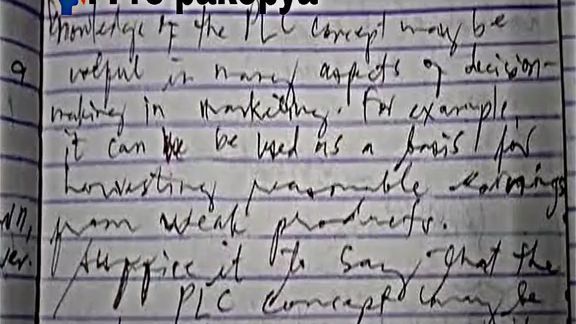 Knowledge of the PLC concept may be
useful in many aspects of decision-
making in marketing. For example,
it can be be used as a basis for
harvesting reasonable earnings
from weak products.
Suffice it to say, that the
PLC concept may be